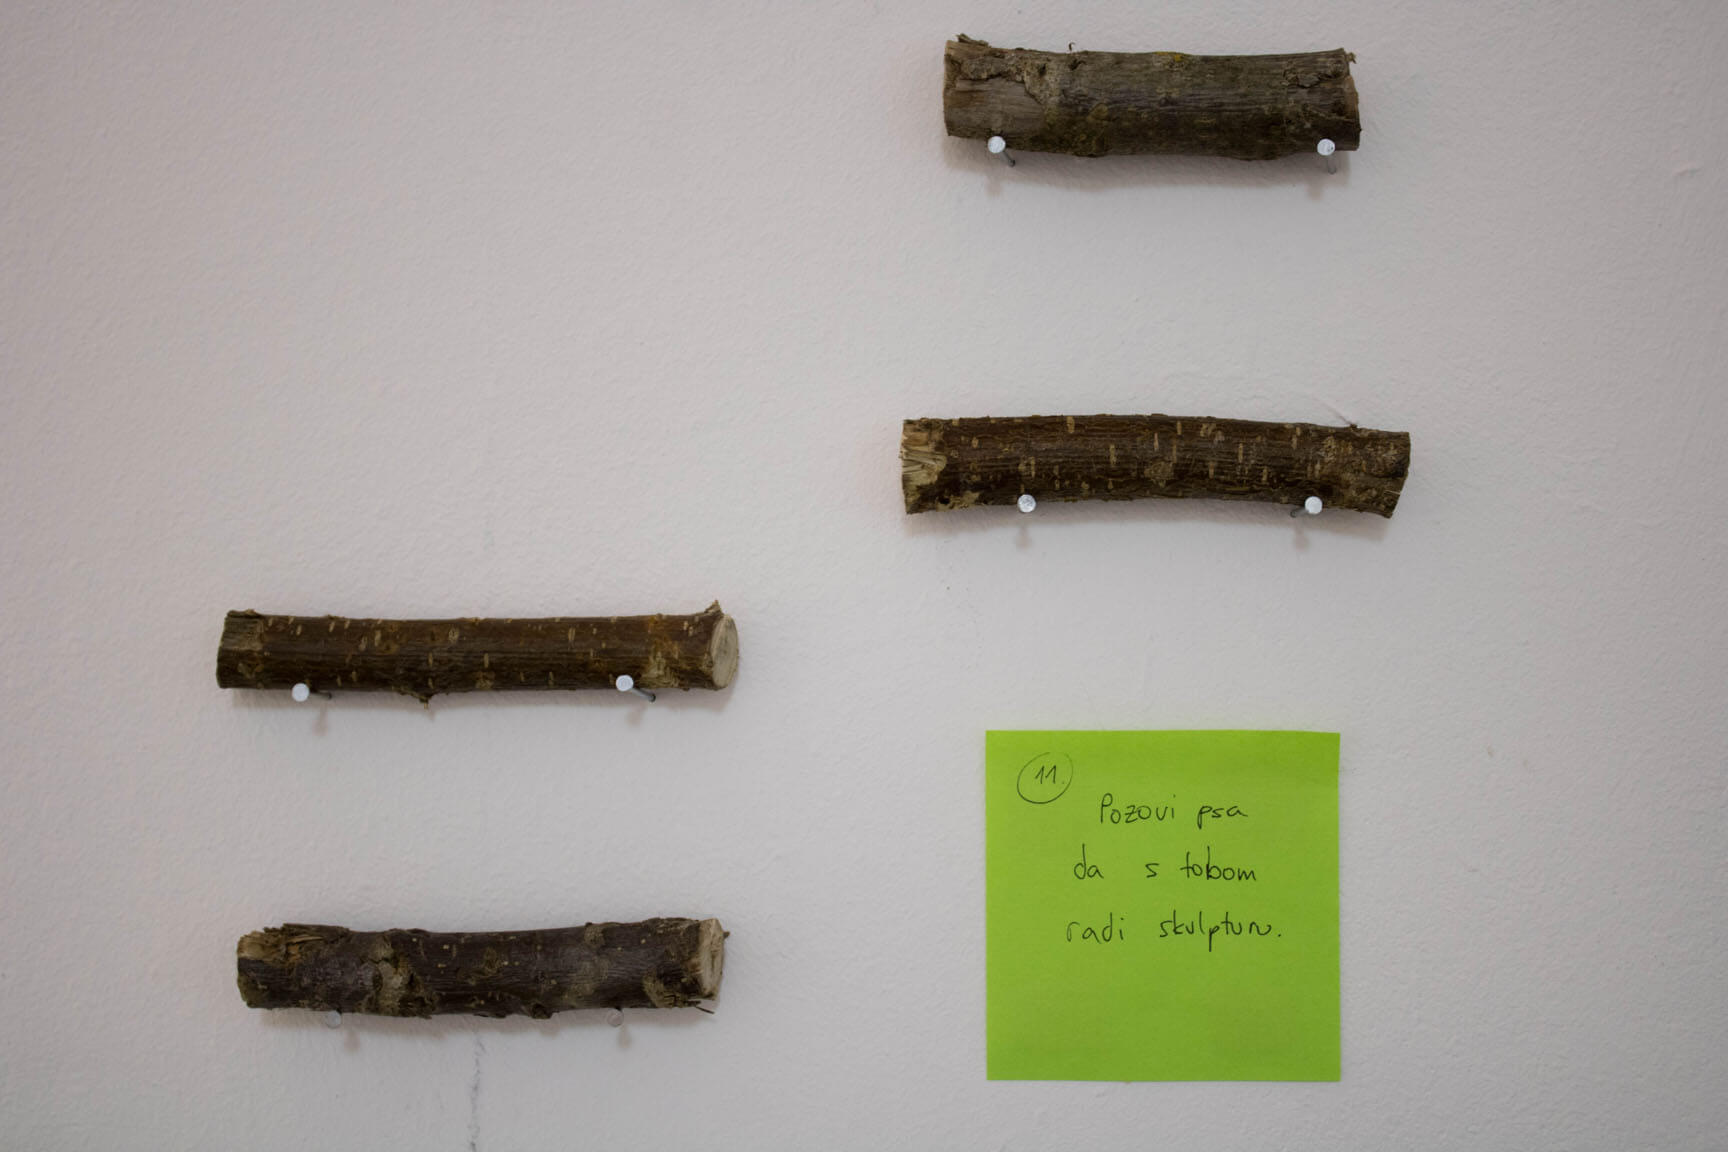 11.
Pozovi psa
da s tobom
radi skulpturu.